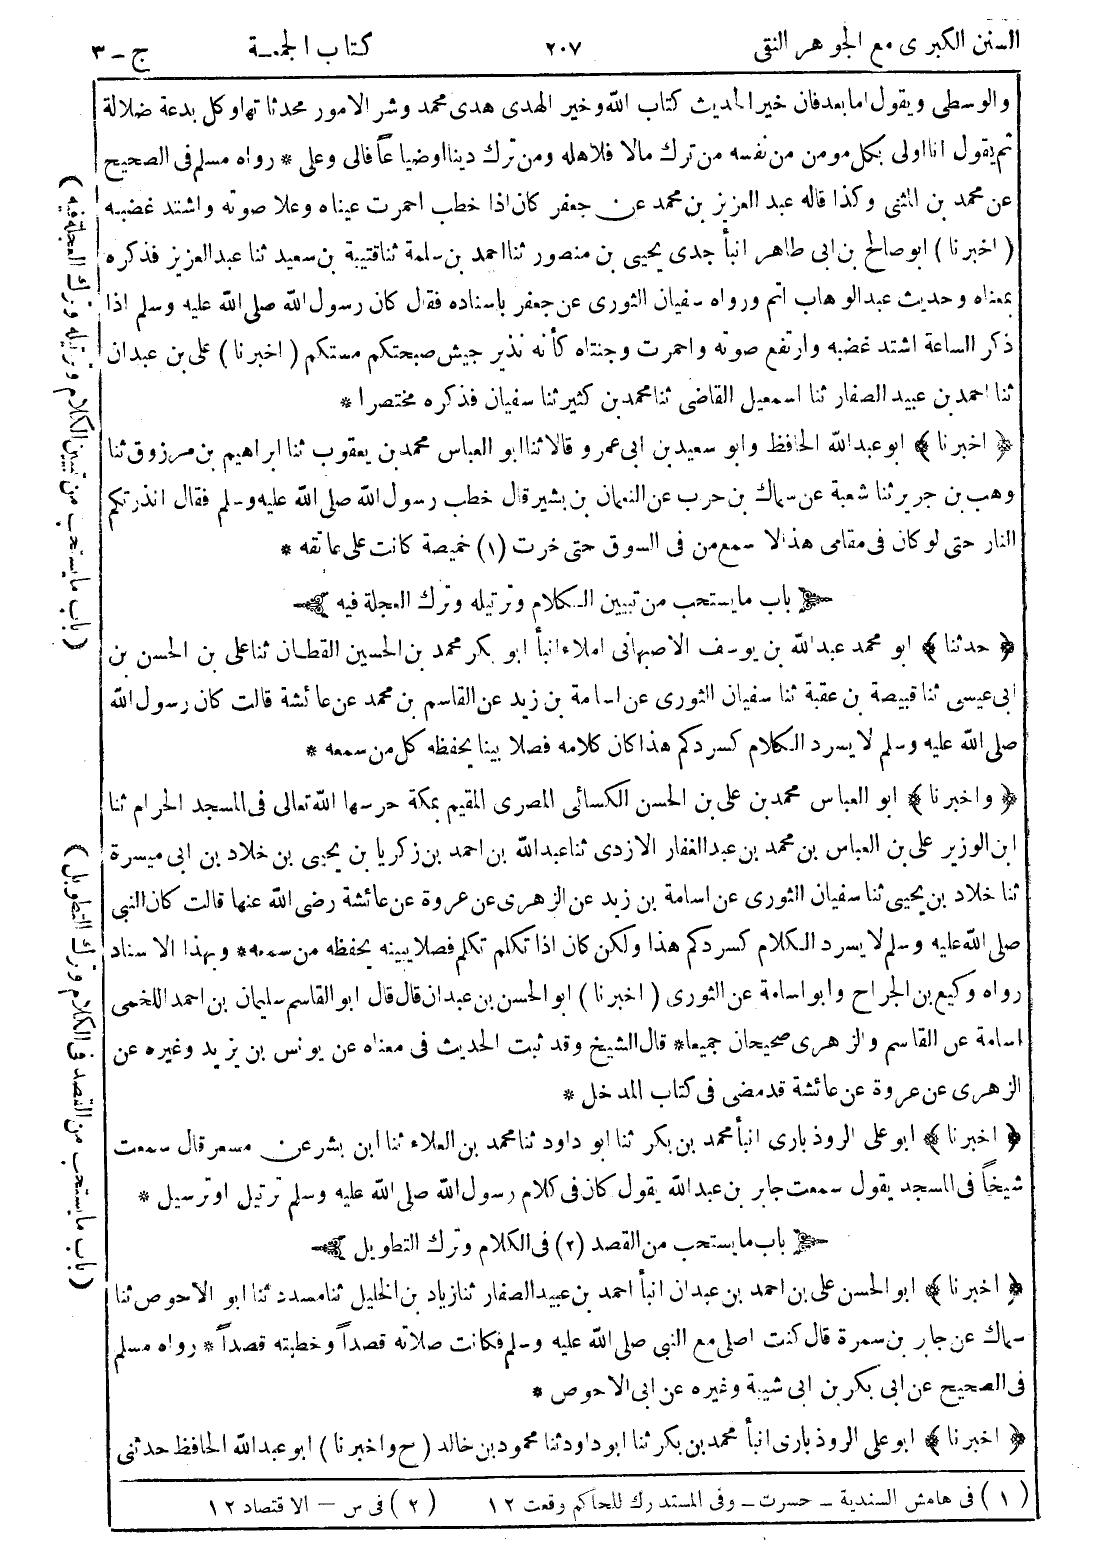 السنن الكبرى مع الجوهر النقى ٢٠٧ كتاب الجمعة ج - ٣
والوسطى ويقول اما بعد فان خير الحديث كتاب الله وخير الهدى هدى محمد وشر الامور محدثاتها وكل بدعة ضلالة
ثم يقول انا اولى بكل مومن من نفسه من ترك مالا فلاهله ومن ترك دينا اوضياعاً فالى وعلى * رواه مسلم فى الصحيح
عن محمد بن المثنى وكذا قاله عبد العزيز بن محمد عن جعفر كان اذا خطب احمرت عيناه وعلا صوته واشتد غضبه
( اخبرنا ) ابو صالح بن ابى طاهر انبأ جدى يحيى بن منصور ثنا احمد بن سلمة ثنا قتيبة بن سعيد ثنا عبد العزيز فذكره
بمعناه وحديث عبد الوهاب اتم ورواه سفيان الثورى عن جعفر باسناده فقال كان رسول الله صلى الله عليه وسلم اذا
ذكر الساعة اشتد غضبه وارتفع صوته واحمرت وجنتاه كأنه نذير جيش صبحتكم مستكم ( اخبرنا ) على بن عبدان
ثنا احمد بن عبيد الصفار ثنا اسمعيل القاضى ثنا محمد بن كثير ثنا سفيان فذكره مختصرا *
﴿ اخبرنا ﴾ ابو عبد الله الحافظ وابو سعيد بن ابى عمرو قالا ثنا ابو العباس محمد بن يعقوب ثنا ابراهيم بن مرزوق ثنا
وهب بن جرير ثنا شعبة عن سماك بن حرب عن النعمان بن بشير قال خطب رسول الله صلى الله عليه وسلم فقال انذرتكم
النار حتى لو كان فى مقامى هذا لا سمع من فى السوق حتى خرت (١) خميصة كانت على عاتقه *
باب ما يستحب من تبيين الكلام وترتيله وترك العجلة فيه
﴿ حدثنا ﴾ ابو محمد عبد الله بن يوسف الاصبهانى املاء انبأ ابو بكر محمد بن الحسين القطان ثنا على بن الحسن بن
ابى عيسى ثنا قبيصة بن عقبة ثنا سفيان الثورى عن اسامة بن زيد عن القاسم بن محمد عن عائشة قالت كان رسول الله
صلى الله عليه وسلم لا يسرد الكلام كسردكم هذا كان كلامه فصلا بينا يحفظه كل من سمعه *
﴿ واخبرنا ﴾ ابو العباس محمد بن على بن الحسن الكسائى المصرى المقيم بمكة حرسها الله تعالى فى المسجد الحرام ثنا
ابن الوزير على بن العباس بن محمد بن عبد الغفار الازدى ثنا عبد الله بن احمد بن زكريا بن يحيى بن خلاد بن ابى ميسرة
ثنا خلاد بن يحيى ثنا سفيان الثورى عن اسامة بن زيد عن الزهرى عن عروة عن عائشة رضى الله عنها قالت كان النبى
صلى الله عليه وسلم لا يسرد الكلام كسردكم هذا ولكن كان اذا تكلم تكلم فصلا يبينه يحفظه من سمعه * وبهذا الاسناد
رواه وكيع بن الجراح وابو اسامة عن الثورى ( اخبرنا ) ابو الحسن بن عبدان قال قال ابو القاسم سليمان بن احمد اللخمى
اسامة عن القاسم والزهرى صحيحان جميعا * قال الشيخ وقد ثبت الحديث فى معناه عن يونس بن يزيد وغيره عن
الزهرى عن عروة عن عائشة قد مضى فى كتاب المدخل *
﴿ اخبرنا ﴾ ابو على الروذبارى انبأ محمد بن بكر ثنا ابو داود ثنا محمد بن العلاء ثنا ابن بشر عن مسعر قال سمعت
شيخاً فى المسجد يقول سمعت جابر بن عبد الله يقول كان فى كلام رسول الله صلى الله عليه وسلم ترتيل او ترسيل *
باب ما يستحب من القصد (٢) فى الكلام وترك التطويل
﴿ اخبرنا ﴾ ابو الحسن على بن احمد بن عبدان انبأ احمد بن عبيد الصفار ثنا زياد بن الخليل ثنا مسدد ثنا ابو الاحوص ثنا
سماك عن جابر بن سمرة قال كنت اصلى مع النبى صلى الله عليه وسلم فكانت صلاته قصداً وخطبته قصداً * رواه مسلم
فى الصحيح عن ابى بكر بن ابى شيبة وغيره عن ابى الاحوص *
﴿ اخبرنا ﴾ ابو على الروذبارى انبأ محمد بن بكر ثنا ابو داود ثنا محمود بن خالد ( ح واخبرنا ) ابو عبد الله الحافظ حدثنى
(١) فى هامش السندية - حسرت - وفى المستدرك للحاكم وقعت ١٢ (٢) فى س - الاقتصاد ١٢
(باب ما يستحب من تبيين الكلام وترتيله وترك العجلة فيه)
(باب ما يستحب من القصد فى الكلام وترك التطويل)